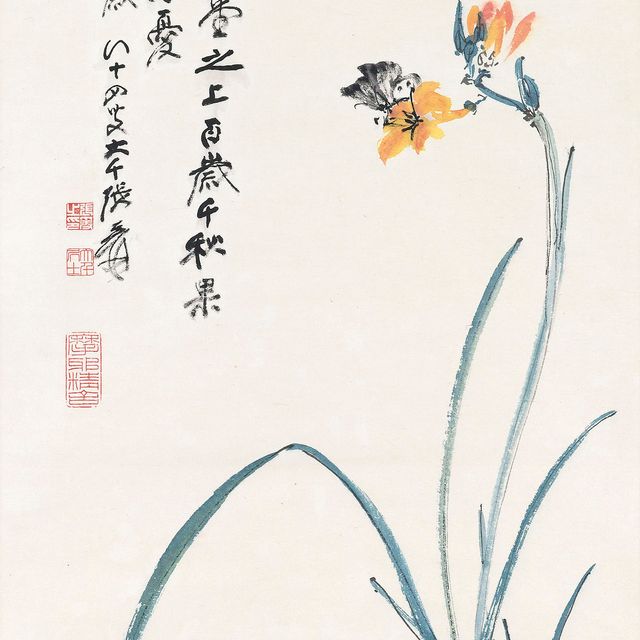 堂之上百歲千秋果
憂
八十四叟大千張爰